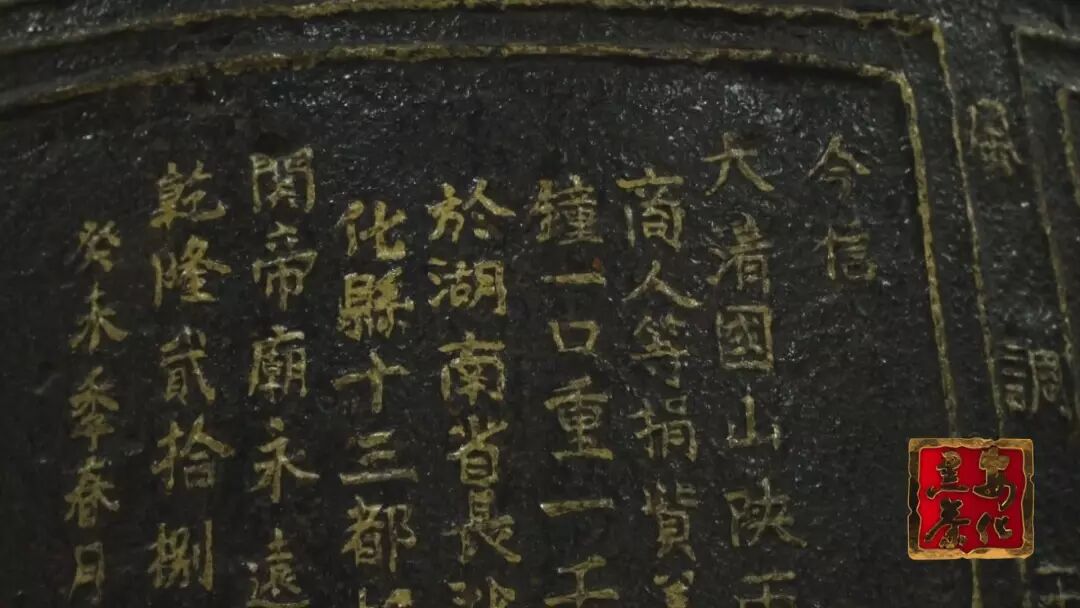 風調
今信
大清國山陝
商人等捐貲
鐘一口重一千
於湖南省長沙
化縣十三都
関帝廟永遠
乾隆貳拾捌
癸未季春月
安化
黑茶